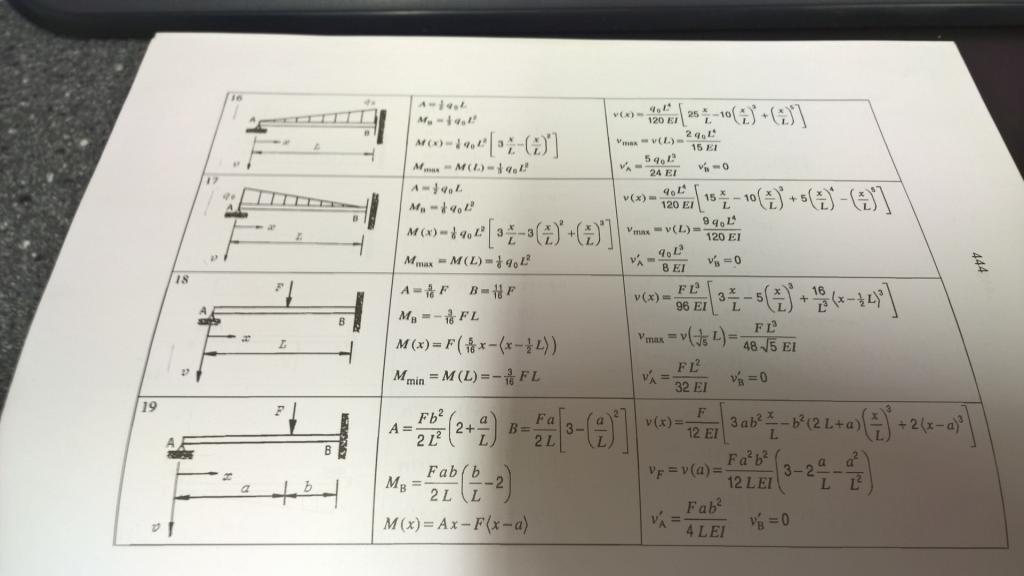 16
q₀
A
B
x
L
v
A = ½ q₀L
M_B = ⅓ q₀L²
M(x) = ⅙ q₀L² [3 x/L − (x/L)³]
M_max = M(L) = ⅓ q₀L²
v(x) = q₀L⁴/120 EI [25 x/L − 10(x/L)³ + (x/L)⁵]
v_max = v(L) = 2 q₀L⁴/15 EI
v′_A = 5 q₀L³/24 EI v′_B = 0
17
q₀
A
B
x
L
v
A = ½ q₀L
M_B = ⅙ q₀L²
M(x) = ⅙ q₀L² [3 x/L − 3(x/L)² + (x/L)³]
M_max = M(L) = ⅙ q₀L²
v(x) = q₀L⁴/120 EI [15 x/L − 10(x/L)³ + 5(x/L)⁴ − (x/L)⁵]
v_max = v(L) = 9 q₀L⁴/120 EI
v′_A = q₀L³/8 EI v′_B = 0
18
F
A
B
x
L
v
A = 5/16 F B = 11/16 F
M_B = −3/16 FL
M(x) = F(5/16 x − ⟨x − ½ L⟩)
M_min = M(L) = −3/16 FL
v(x) = FL³/96 EI [3 x/L − 5(x/L)³ + 16/L³ ⟨x − ½ L⟩³]
v_max = v(1/√5 L) = FL³/48 √5 EI
v′_A = FL²/32 EI v′_B = 0
19
F
A
B
x
a b
v
A = Fb²/2 L² (2 + a/L) B = Fa/2 L [3 − (a/L)²]
M_B = Fab/2 L (b/L − 2)
M(x) = Ax − F⟨x − a⟩
v(x) = F/12 EI [3 ab² x/L − b²(2 L + a)(x/L)³ + 2⟨x − a⟩³]
v_F = v(a) = Fa²b²/12 LEI (3 − 2 a/L − a²/L²)
v′_A = Fab²/4 LEI v′_B = 0
444